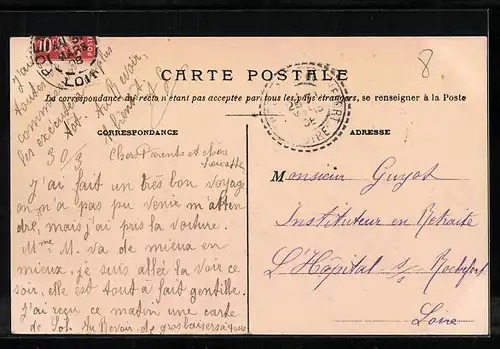 8
CARTE POSTALE
La correspondance au recto n'étant pas acceptée par tous les pays étrangers, se renseigner à la Poste
CORRESPONDANCE
ADRESSE
30/3
Chers Parents et chère
J'ai fait un très bon voyage
on n'a pas pu venir m'atten
dre, mais j'ai pris la voiture.
Mme M. va de mieux en
mieux, je suis allée la voir ce
soir, elle est tout à fait gentille.
J'ai reçu ce matin une carte
de Sol. Au Revoir de gros baisers à tous
Monsieur Guyot
Instituteur en Retraite
L'Hôpital s/s Rochefort
Loire